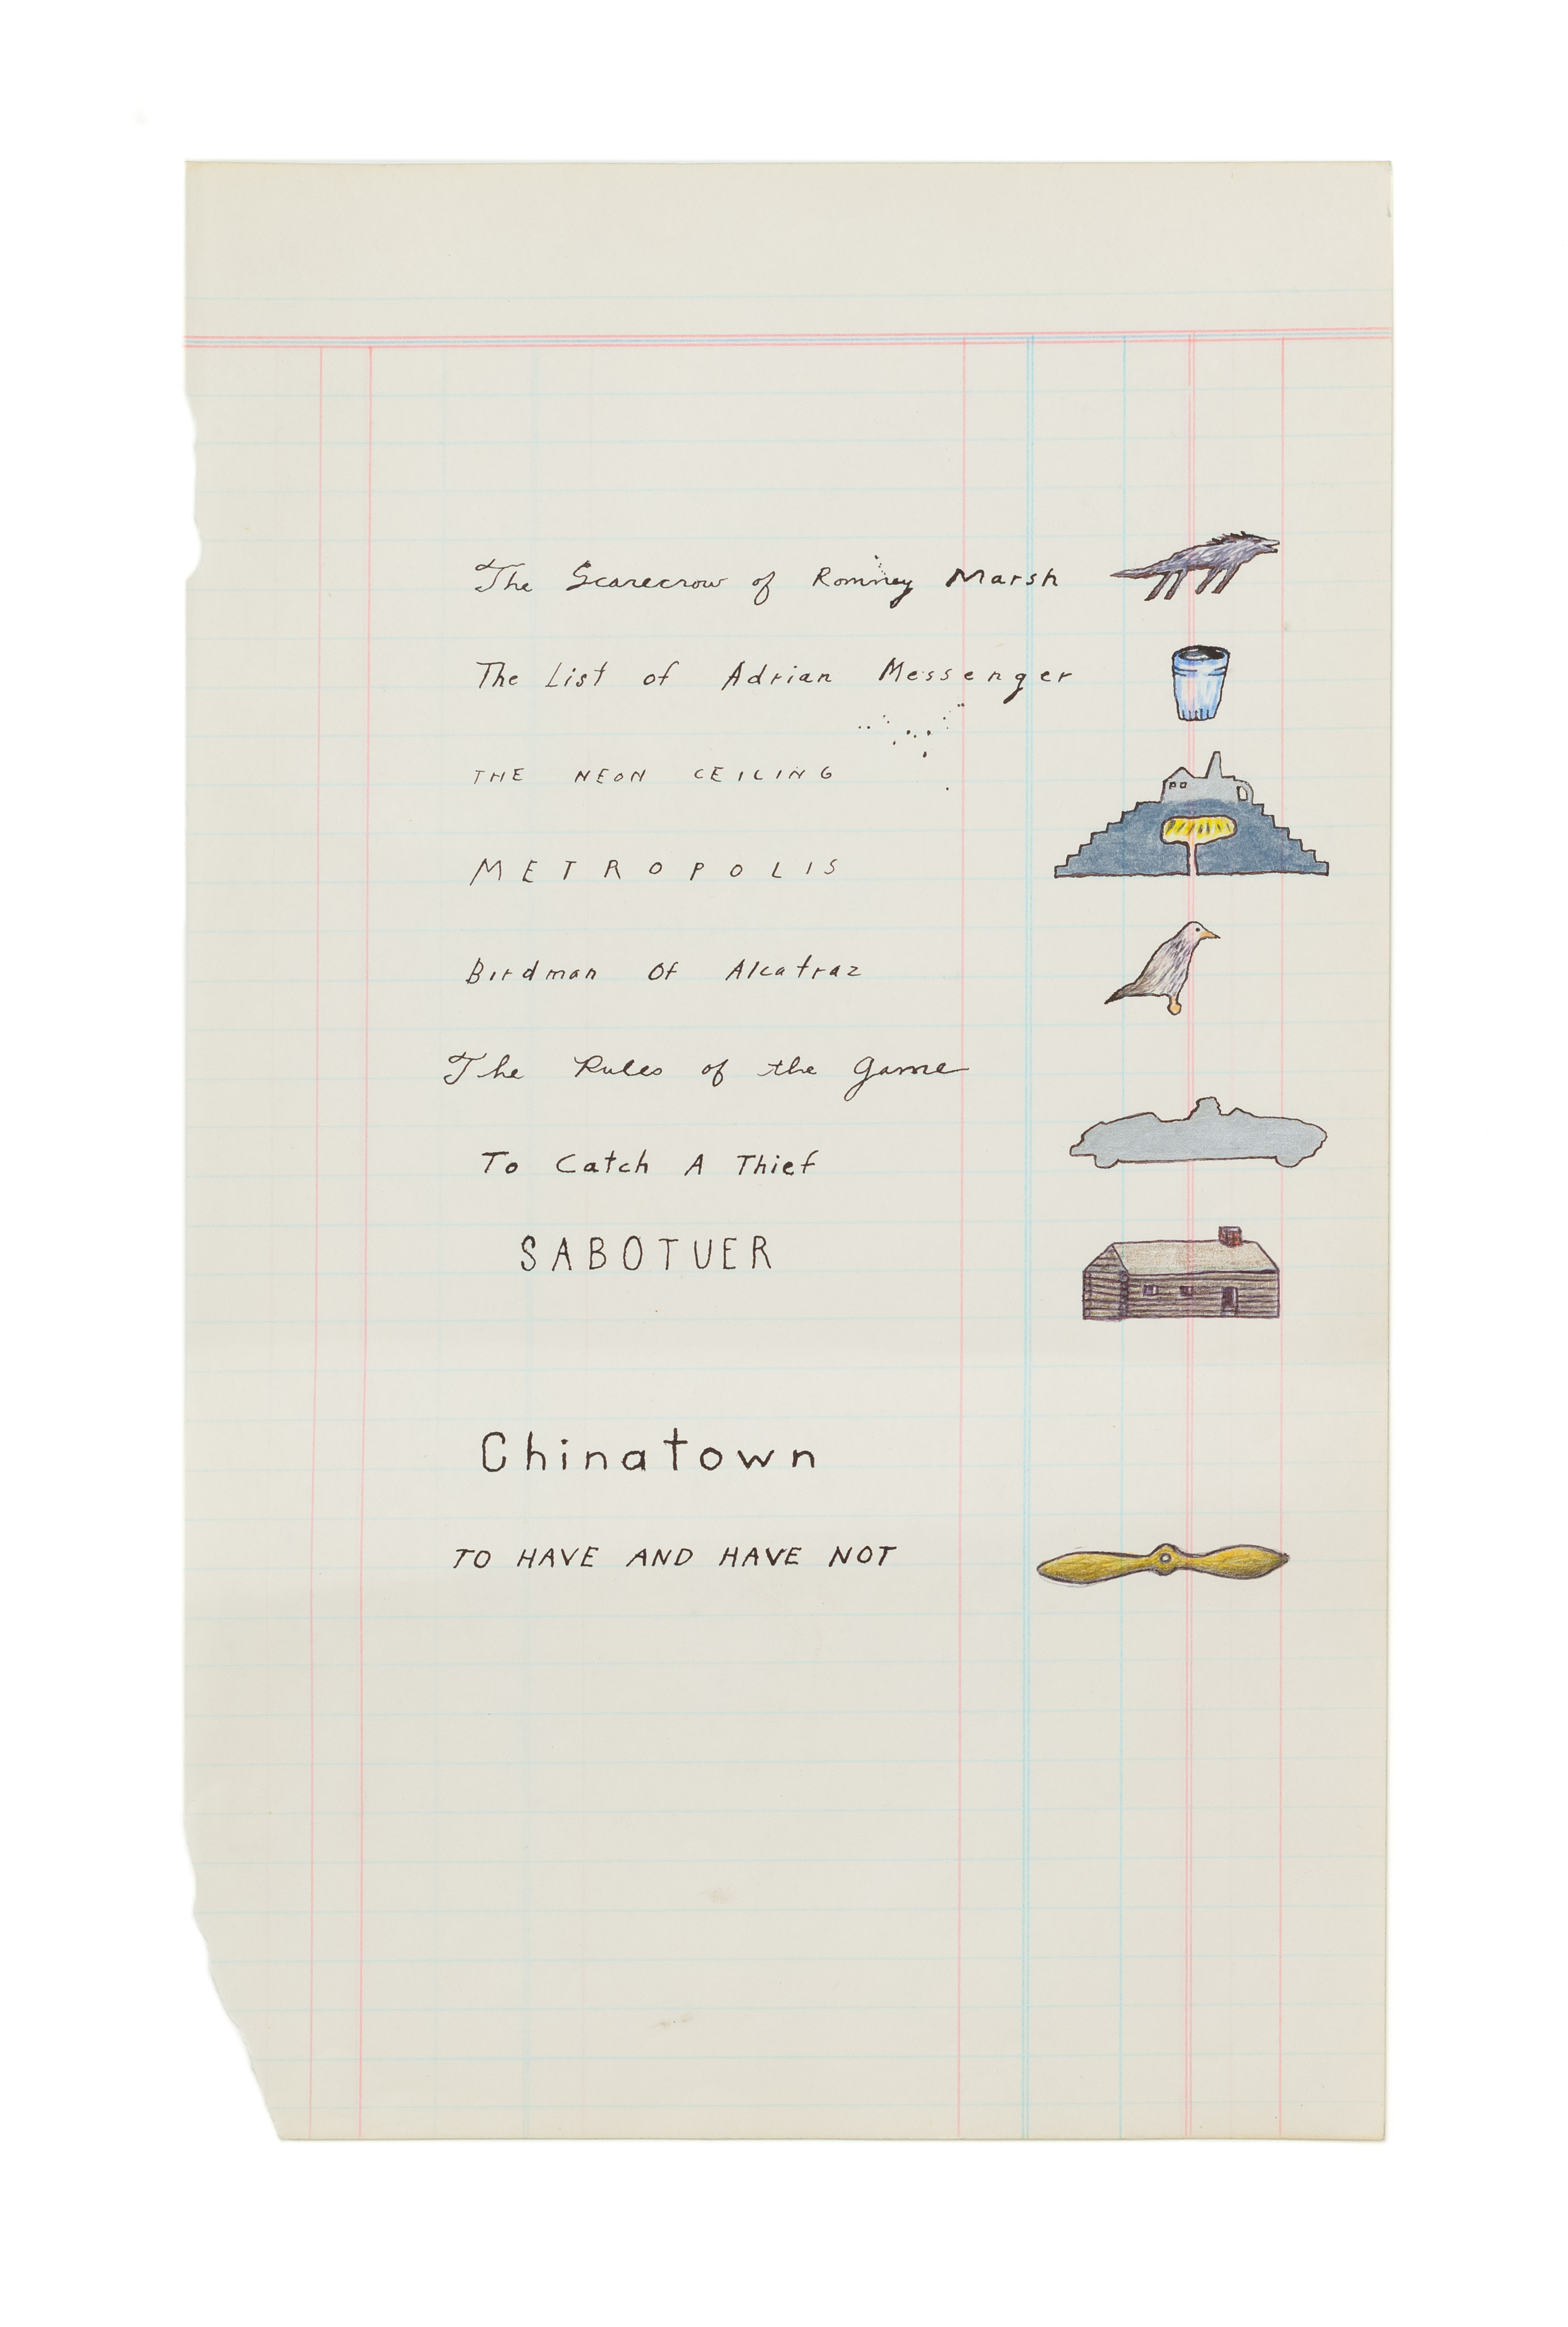 The Scarecrow of Romney Marsh
The List of Adrian Messenger
THE NEON CEILING
METROPOLIS
Birdman Of Alcatraz
The Rules of the Game
To Catch A Thief
SABOTUER
Chinatown
TO HAVE AND HAVE NOT